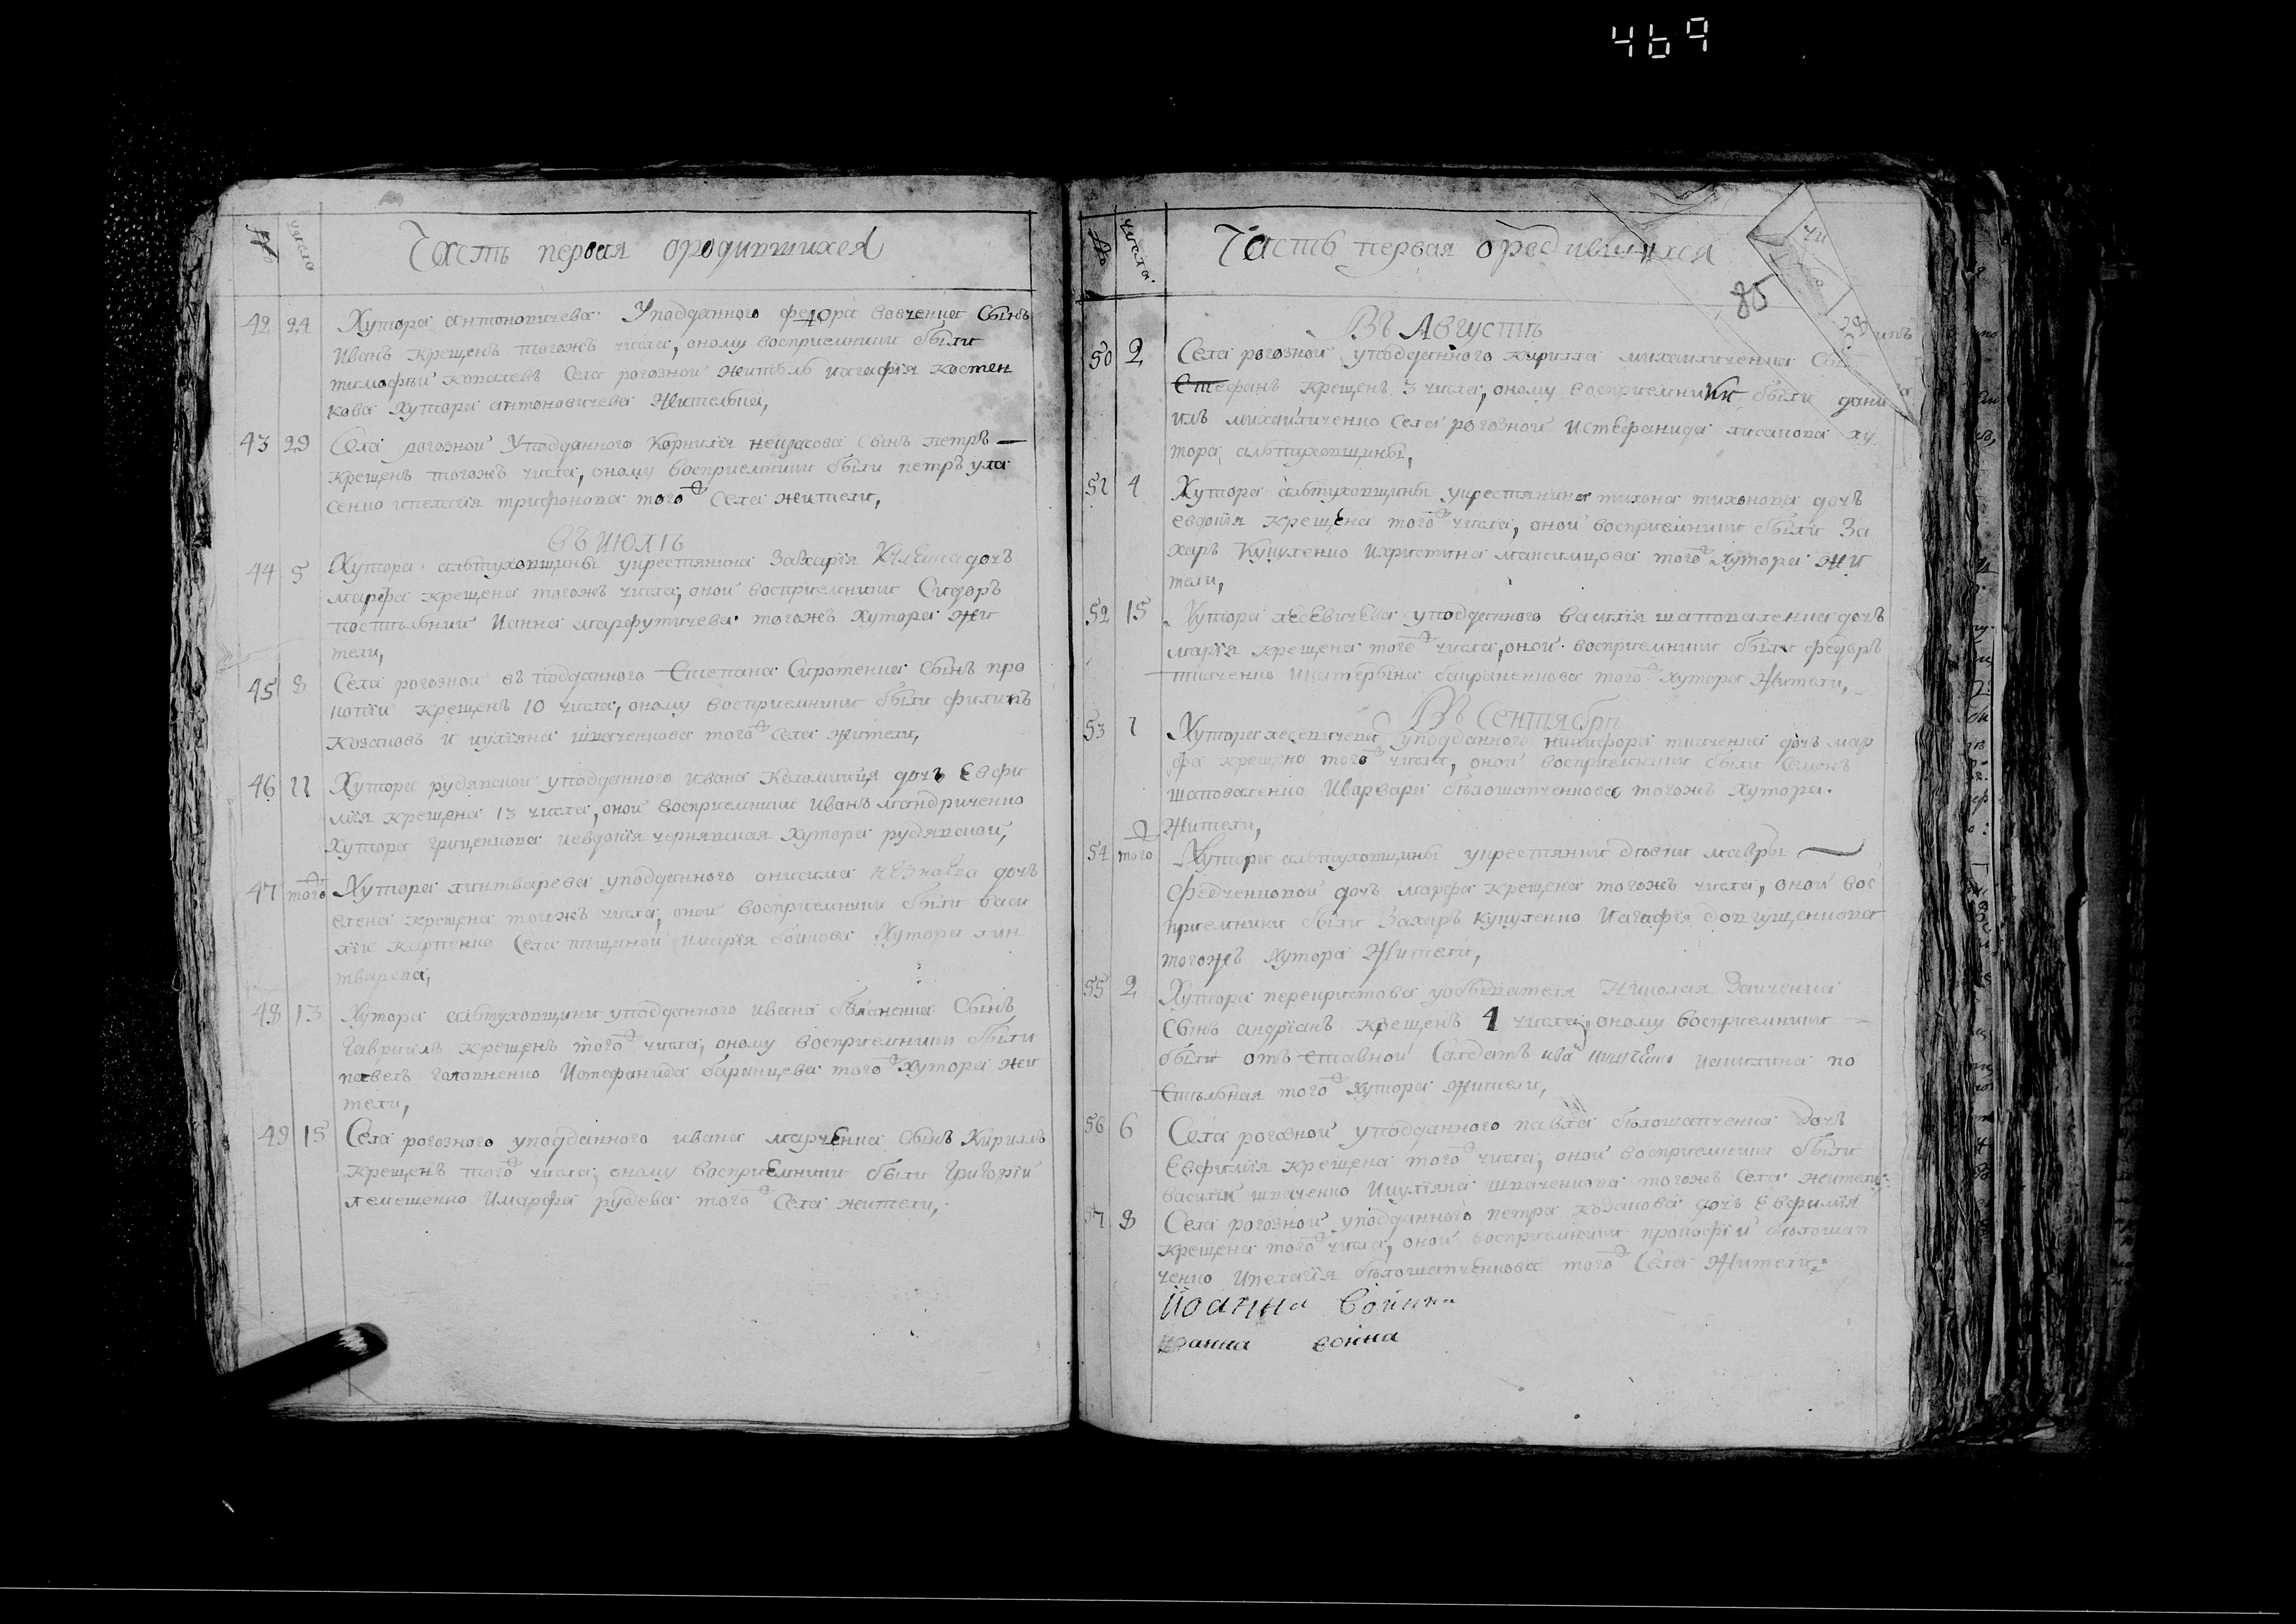 469
№ число Часть первая ородившихся
42 24 Хутора антоновичева Уподданного федора вовченка Сынъ
Иванъ крещенъ тогожъ числа, оному восприемники были
тимофѣй ковалевъ Села рогозной житель иагафія костен
кова Хутора антоновичева Жителька,
43 29 Села рогозной Уподданного Корнилія Сынъ петръ —
крещенъ тогожъ числа, оному восприемники были петръ ула
сенко ипелагія трифонова того Села жители,
Въ июлѣ
44 5 Хутора алтуховщины укрестянина Захарія дочъ
марфа крещена тогожъ числа, оной восприемники Сидоръ
постѣлний Ианна марфутичева тогожъ Хутора жи
тели,
45 8 Села рогозной въ подданного Стетана Сиротенка Сынъ про
копій крещенъ 10 числа, оному восприемники были филипъ
Козаковъ и иуліяна шпаченкова того Села жители,
46 11 Хутора рудявской уподданного ивана Коломийця дочъ Евфи
мія крещена 13 числа, оной восприемники Иванъ мандриченко
Хутора гриценкова иевдокія чернявская Хутора рудявской,
47 того Хутора линтварева уподданного онисима дочъ
елена крещена тогожъ числа, оной восприемники были васи
лій карпенко Села имарія бойкова Хутора лин
тварева,
48 13 Хутора алтуховщини уподданного ивана Сынъ
гавриилъ крещенъ того числа, оному восприемники были
павелъ головненко Истефанида баранцева того Хутора жи
тели,
49 15 Села рогозного уподданного ивана марченка Сынъ Кириллъ
крещенъ того числа, оному восприемники были григорій
лемещенко Имарфа рудева того Села жители,
№ числа. Часть первая ородившихся
85
Въ Августѣ
50 2 Села рогозной уподданного кирилла михайличенка Сы
Стефанъ крещенъ 3 числа, оному восприемники были дани
илъ михайличенко Села рогозной Истефанида лисакова ху
тора алтуховщины,
51 4 Хутора алтуховщины укрестянина тихона тихонова дочъ
евдокія крещена того числа, оной восприемники были За
харъ Куцуленко Ихристина максимцова того хутора жи
тели,
52 15 Хутора лесевичева уподданного василія шаповаленка дочъ
марія крещена того числа, оной восприемники были федоръ
ткаченко Икатерына баираченкова того хутора Жители,
Въ Сентябри
53 1 Хутора лесевичева уподданного никифора ткаченка дочъ мар
фа крещена того числа, оной восприемники были Семенъ
шаповаленко Иварвара бѣлошапченкова тогожъ хутора
Жители,
54 того Хутора алтуховщины укрестянки дѣвки мавры
Федченковой дочъ марфа крещена тогожъ числа, оной вос
приемники были Захаръ куцуленко Иагафія довгущенкова
тогожъ Хутора Жители,
55 2 Хутора перекрестова уобывателя Николая Заиченка
Сынъ андріанъ крещенъ 4 числа, оному восприемники
были отъ Ставной Салдатъ ива иакилина по
Стѣлная того хутора жители,
56 6 Села рогозной уподданного павла бѣлошапченка дочъ
Евфимія крещена того числа, оной восприемники были
василій шпаченко Иуліяна шпаченкова тогожъ Села жители
57 8 Села рогозной уподданного петра козакова дочъ Евфимія
крещена того числа, оной восприемники прокофій бѣлошап
ченко Ипелагія бѣлошапченкова того Села Жители,
Иоанна Война
Иоанна война